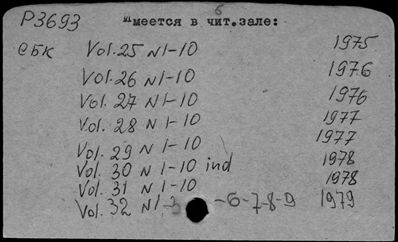 Р3693 Имеется в чит.зале: 6
СБК Vol. 25 N 1-10 1975
Vol. 26 N 1-10 1976
Vol. 27 N 1-10 1976
Vol. 28 N 1-10 1977
Vol. 29 N 1-10 1977
Vol. 30 N 1-10 ind 1978
Vol. 31 N 1-10 1978
Vol. 32 N 1-3 -6-7-8-9 1979